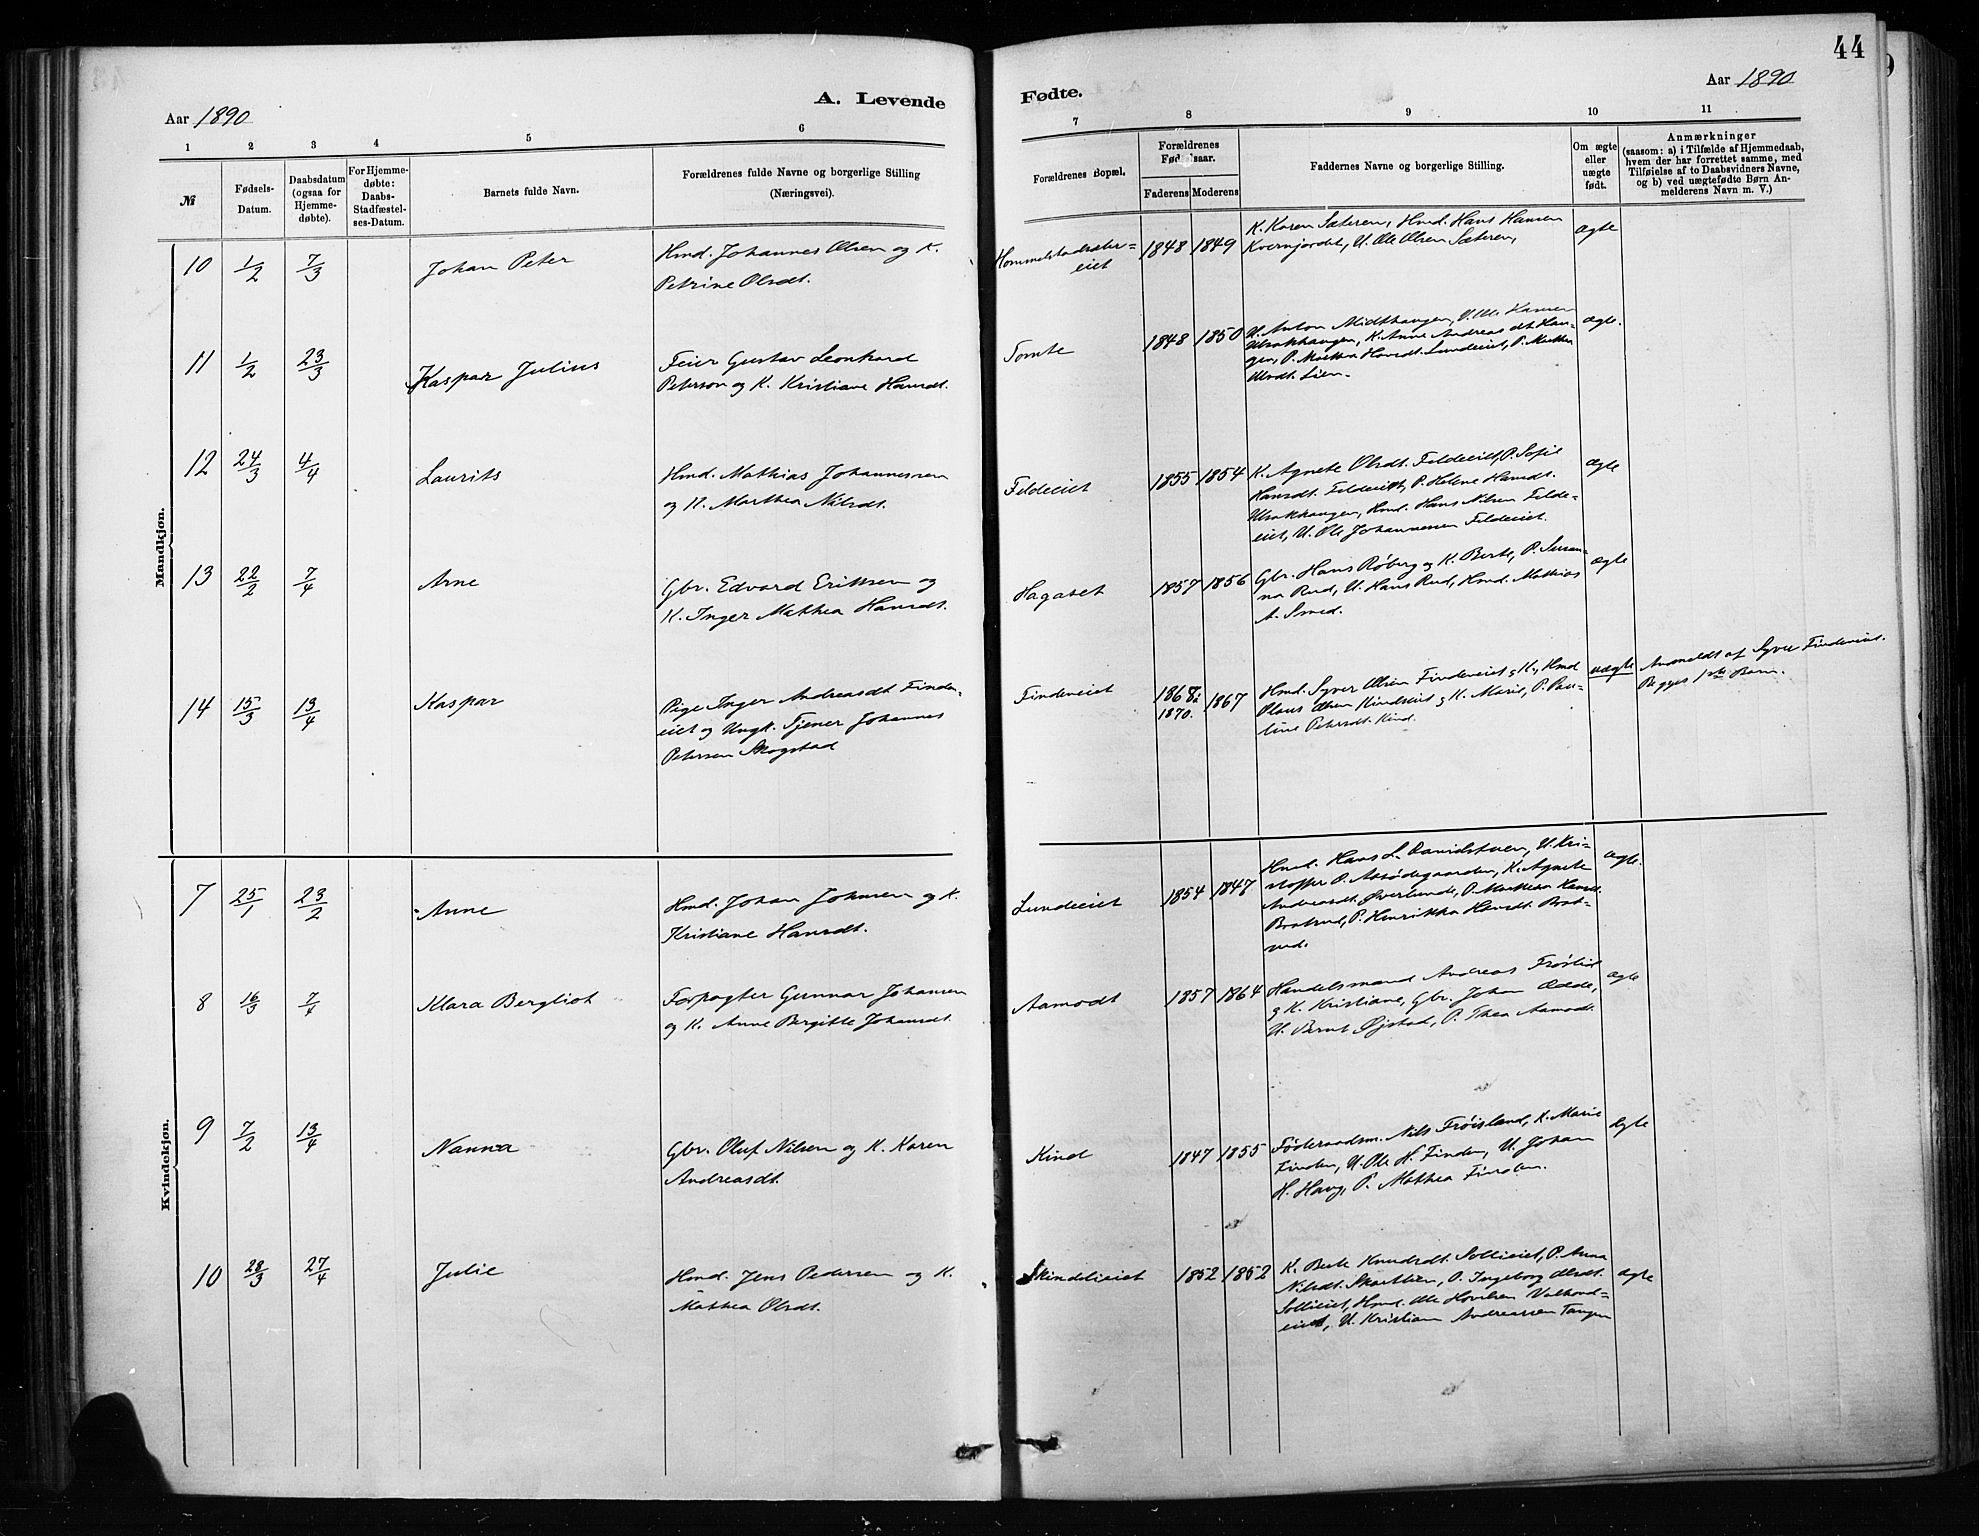 44
Aar 1890
A. Levende
Fødte.
Aar 1890
1 2 3 4 5 6 7 8 9 10 11
№
Fødsels-
Datum.
Daabsdatum
(ogsaa for
Hjemme-
døbte).
For Hjemme-
døbte:
Daabs-
Stadfæstel-
ses-Datum.
Barnets fulde Navn.
Forældrenes fulde Navne og borgerlige Stilling
(Næringsvei).
Forældrenes Bopæl.
Forældrenes
Fødselsaar.
Faderens Moderens
Faddernes Navne og borgerlige Stilling.
Om ægte
eller
uægte
født.
Anmærkninger
(saasom: a) i Tilfælde af Hjemmedaab,
hvem der har forrettet samme, med
Tilføielse af to Daabsvidners Navne,
og b) ved uægtefødte Børn An-
melderens Navn m. V.)
Mandkjøn.
10 1/2 7/3 Johan Peter
Hmd. Johannes Olsen og K.
Petrine Olsdt.
Hommelstadsæter-
eiet
1848 1849
K. Karen Sæteren, Hmd. Hans Hansen
Kvernjordet, U. Ole Olsen Sæteren,
ægte
11 1/2 23/3 Kaspar Julius
Feier Gustav Leonhard
Peterson og K. Kristiane Hansdt.
Tomte
1848 1850
U. Anton Midthaugen, U. Ole Hansen
Ulsakhaugen, K. Anne Andreasdt. Hau-
gen, P. Marthea Hovdt. Lundeiet, P. Marthea
Olsdt. Lien.
ægte.
12 24/3 4/4 Laurits
Hmd. Mathias Johannessen
og K. Marthea Nilsdt.
Feldeiet
1855 1854
K. Agnete Olsdt. Feldeiet, P. Sofie
Hansdt. Feldeiet, P. Helene Hansdt.
Ulsakhaugen, Hmd. Hans Nilsen Felde-
eiet, U. Ole Johannessen Feldeiet.
ægte
13 22/2 7/4 Arne
Gbr. Edvard Eriksen og
K. Inger Mathea Hansdt.
Hagaset
1857 1856
Gbr. Hans Røberg og K. Berte, P. Susan-
na Rud, U. Hans Rud, Hmd. Mathias
A. Smed.
ægte
14 15/3 13/4 Kaspar
Pige Inger Andreasdt. Finden-
eiet og Ungk. Tjener Johannes
Petersen Skogstad
Findeneiet
1868 à
1870. 1867
Hmd. Syver Olsen Findeneiet & K., Hmd
Olaus Olsen Kindseiet & K. Marie, P. Pau-
line Petersdt. Kind.
uægte
Anmeldt af Syver Findeneiet.
Begges 1ste Barn.
Kvindekjøn.
7 25/1 23/2 Anne
Hmd. Johan Johnsen og K.
Kristiane Hansdt.
Lundeeiet
1854 1847
Hmd. Hans L. Davidstuen, U. Kri-
stoffer P. Aasødegaarden, K. Agnete
Andreasdt. Øverlunde, P. Marthea Hansdt.
Bratrud, P. Henrikka Hansdt. Brat-
rud.
ægte.
8 16/3 7/4 Klara Bergliot
Forpagter Gunnar Johansen
og K. Anne Birgitte Johansdt.
Aamodt
1857 1864
Handelsmand Andreas Frøslid
& K. Kristiane, Gbr. Johan Odde,
U. Bernt Øistad, P. Thea Aamodt.
ægte
9 7/2 13/4 Nanna
Gbr. Oluf Nilsen og K. Karen
Andreasdt.
Kind
1847 1855
Føderaadsm. Nils Frøisland, K. Marie
Finden, U. Ole H. Finden, U. Johan
H. Haug, P. Mathea Finden.
ægte
10 28/3 27/4 Julie
Hmd. Jens Pedersen og K.
Mathea Olsdt.
Skindelieiet
1852 1852
K. Berte Knudsdt. Sollieiet, P. Anna
Nilsdt. Skartlien, P. Ingeborg Olsdt.
Sollieiet, Hmd. Ole Hovelsen Valhovd-
eiet, U. Kristian Andreassen Tangen
ægte